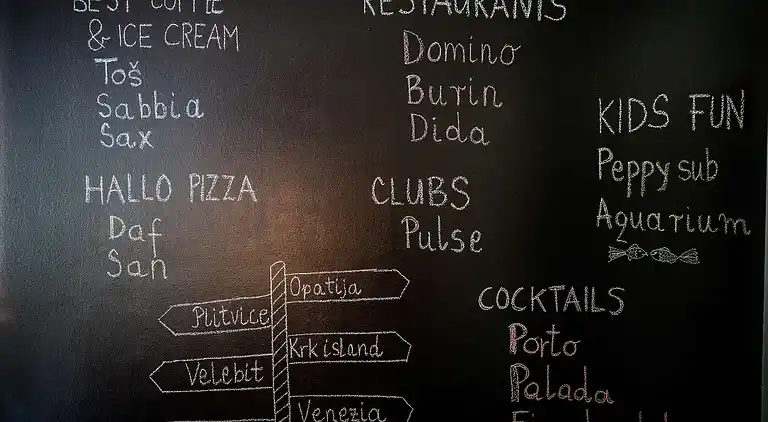 BEST COFFEE
& ICE CREAM
Toš
Sabbia
Sax
HALLO PIZZA
Daf
San
RESTAURANTS
Domino
Burin
Dida
CLUBS
Pulse
KIDS FUN
Peppy sub
Aquarium
COCKTAILS
Porto
Palada
Opatija
Plitvice
Krk island
Velebit
Venezia